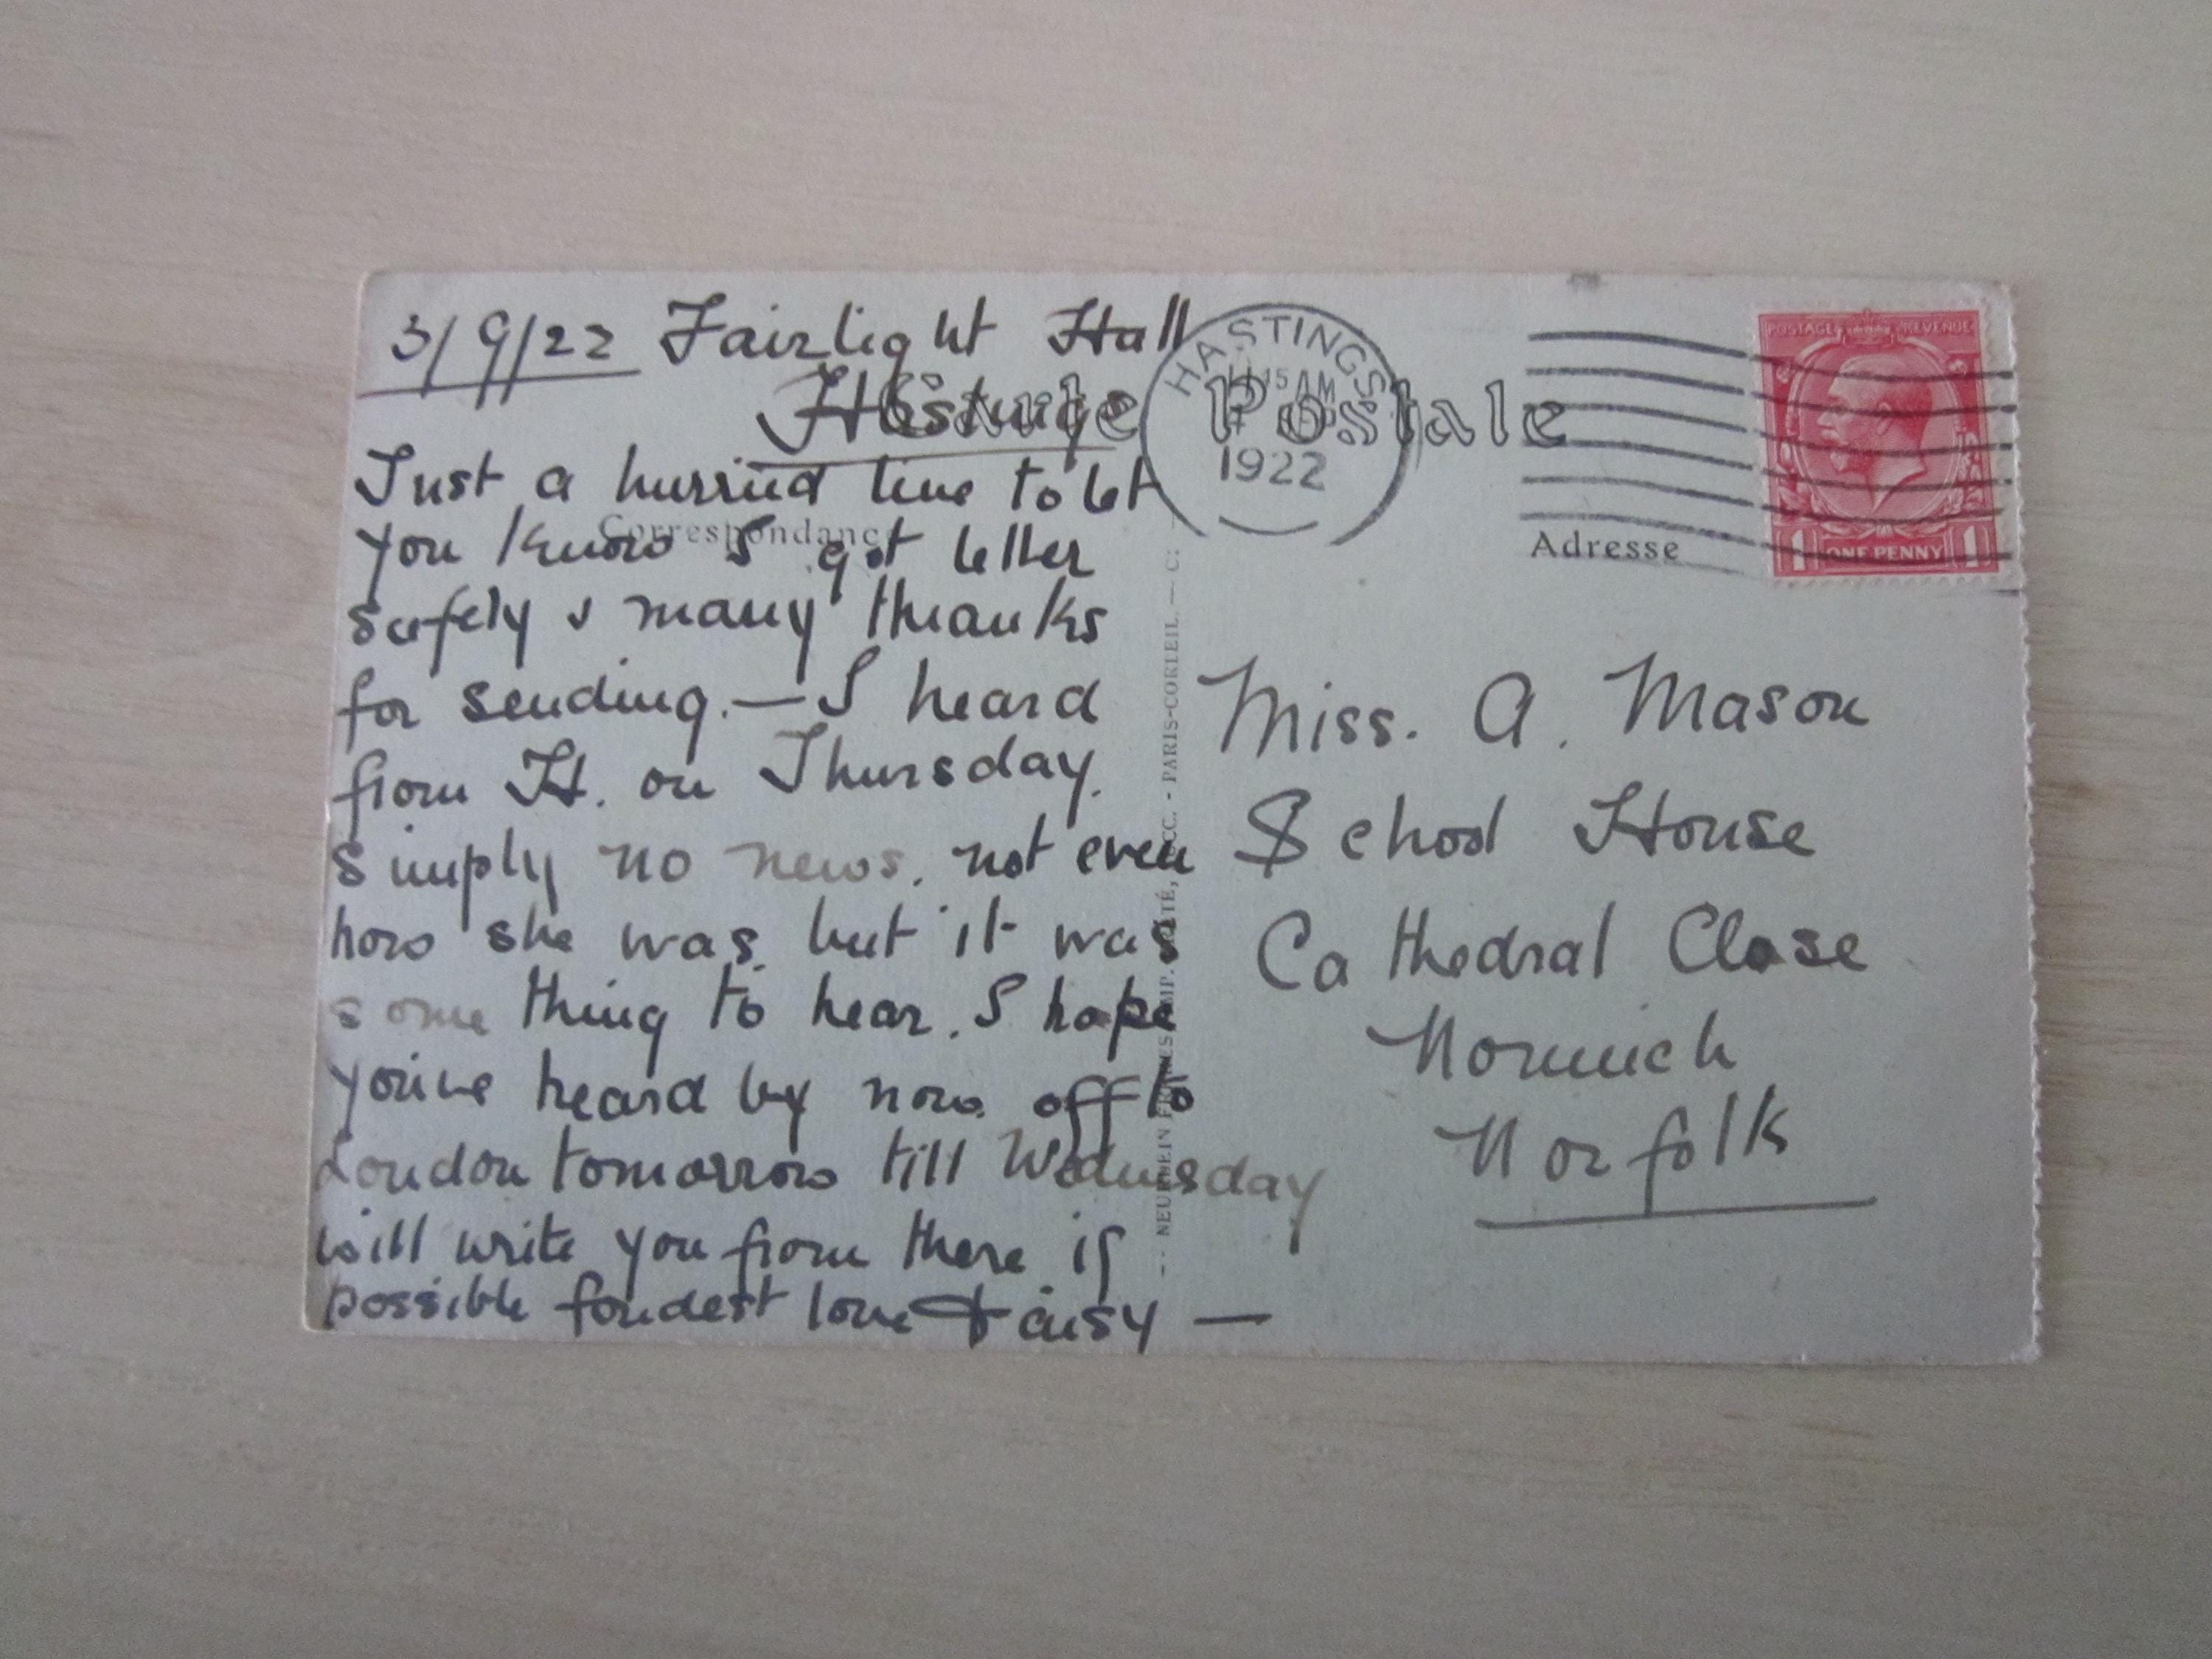 3/9/22 Fairlight Hall
Hastings
Just a hurried line to let
you know I got letter
safely & many thanks
for sending. — I heard
from H. on Thursday.
Simply no news. not even
how she was. but it was
some thing to hear. I hope
you've heard by now. off to
London tomorrow till Wednesday
will write you from there if
possible fondest love Daisy —
Carte Postale
Correspondance
Adresse
HASTINGS
11 15 AM
4 SEP
1922
POSTAGE REVENUE
1 ONE PENNY 1
Miss. A. Mason
School House
Cathedral Close
Norwich
Norfolk
PARIS-CORBEIL. — C: